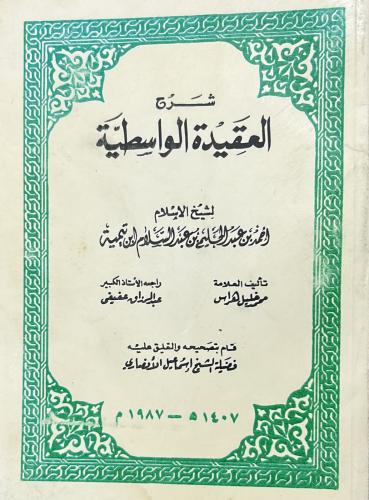 شرح
العقيدة الواسطية
لشيخ الإسلام
أحمد بن عبد الحليم بن عبد السلام ابن تيمية
تأليف العلامة
محمد خليل هراس
راجعه الأستاذ الكبير
عبد الرزاق عفيفي
قام بتصحيحه والتعليق عليه
فضيلة الشيخ إسماعيل الأنصاري
١٤٠٧ هـ — ١٩٨٧ م